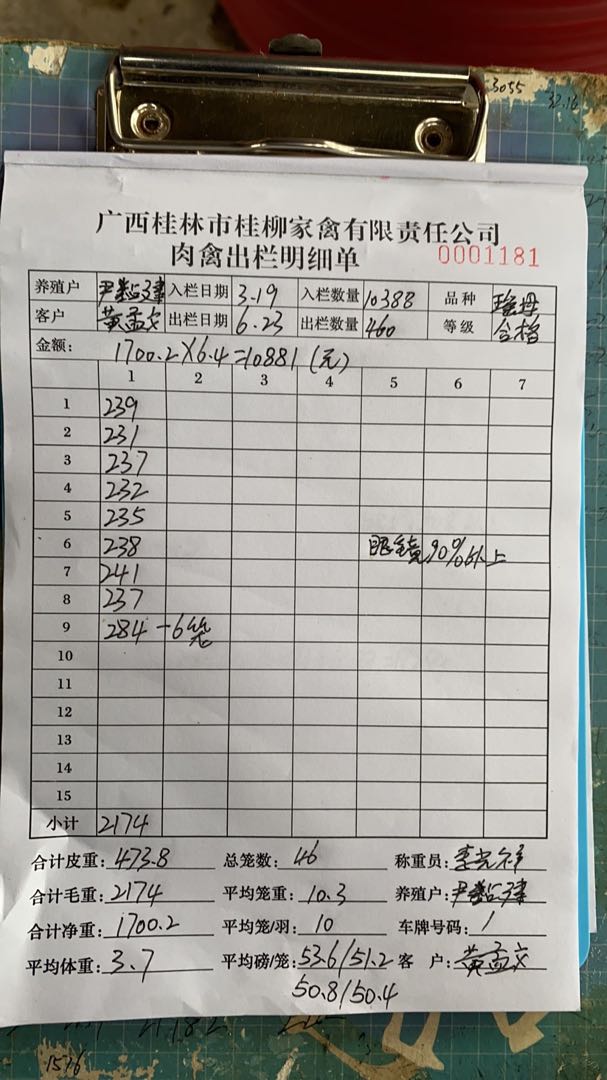 3055
32.16
广西桂林市桂柳家禽有限责任公司
肉禽出栏明细单 0001181
养殖户 入栏日期 3.19 入栏数量 10388 品种 瑶母
客户 黄孟文 出栏日期 6.23 出栏数量 460 等级 合格
金额: 1700.2×6.4=10881(元)
1 2 3 4 5 6 7
1 239
2 231
3 237
4 232
5 235
6 238 眼镜90%以上
7 241
8 237
9 284-6笼
10
11
12
13
14
15
小计 2174
合计皮重: 473.8 总笼数: 46 称重员:
合计毛重: 2174 平均笼重: 10.3 养殖户:
合计净重: 1700.2 平均笼/羽: 10 车牌号码: 1
平均体重: 3.7 平均磅/笼: 53.6/51.2 客 户: 黄孟文
50.8/50.4